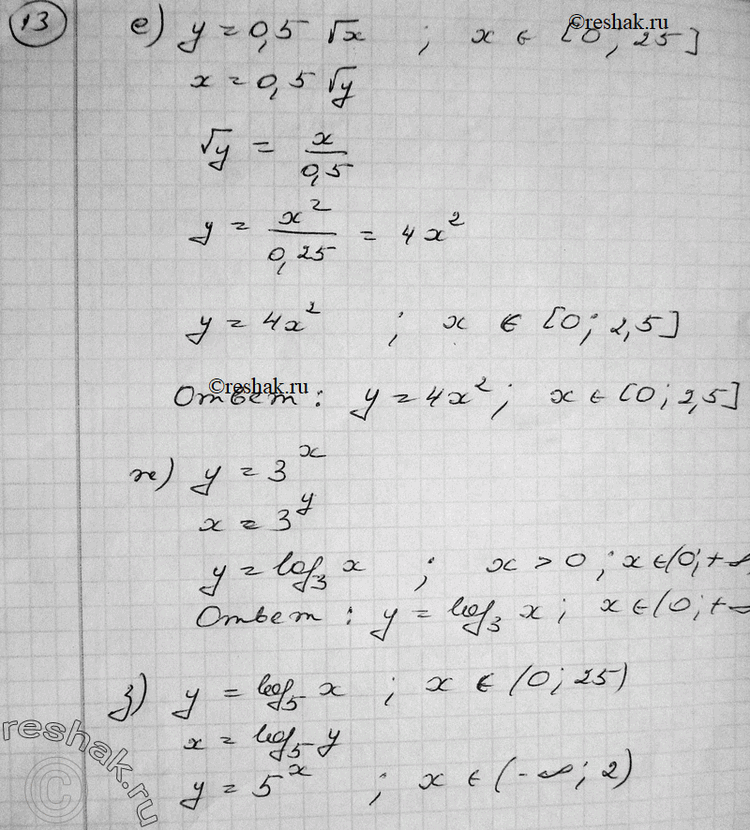 ©reshak.ru
13 е) y = 0,5 √x ; x ∈ [0; 25]
x = 0,5 √y
√y = x/0,5
y = x²/0,25 = 4x²
y = 4x² ; x ∈ [0; 2,5]
©reshak.ru
Ответ: y = 4x²; x ∈ [0; 2,5]
ж) y = 3^x
x = 3^y
y = log₃ x ; x > 0; x ∈ (0; +∞
Ответ: y = log₃ x; x ∈ (0; +∞
з) y = log₅ x ; x ∈ (0; 25)
x = log₅ y
y = 5^x ; x ∈ (-∞; 2)
reshak.ru
©